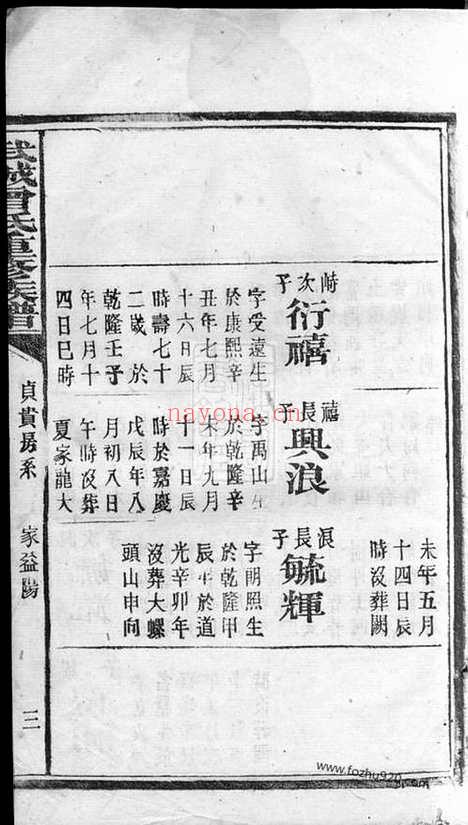 峙次子
衍禧
字受遠生
於康熙辛
丑年七月
十六日辰
時壽七十
二歲於
乾隆壬子
年七月十
四日巳時
禧長子
興浪
字禹山生
於乾隆辛
未年九月
十一日辰
時於嘉慶
戊辰年八
月初八日
午時沒葬
夏家龍大
未年五月
十四日辰
時沒葬闕
浪長子
毓輝
字朗照生
於乾隆甲
辰年於道
光辛卯年
沒葬大螺
頭山申向
武城曾氏重修族譜
貞賞房系
家益陽
三
nayona.cn
www.fozhu920.com